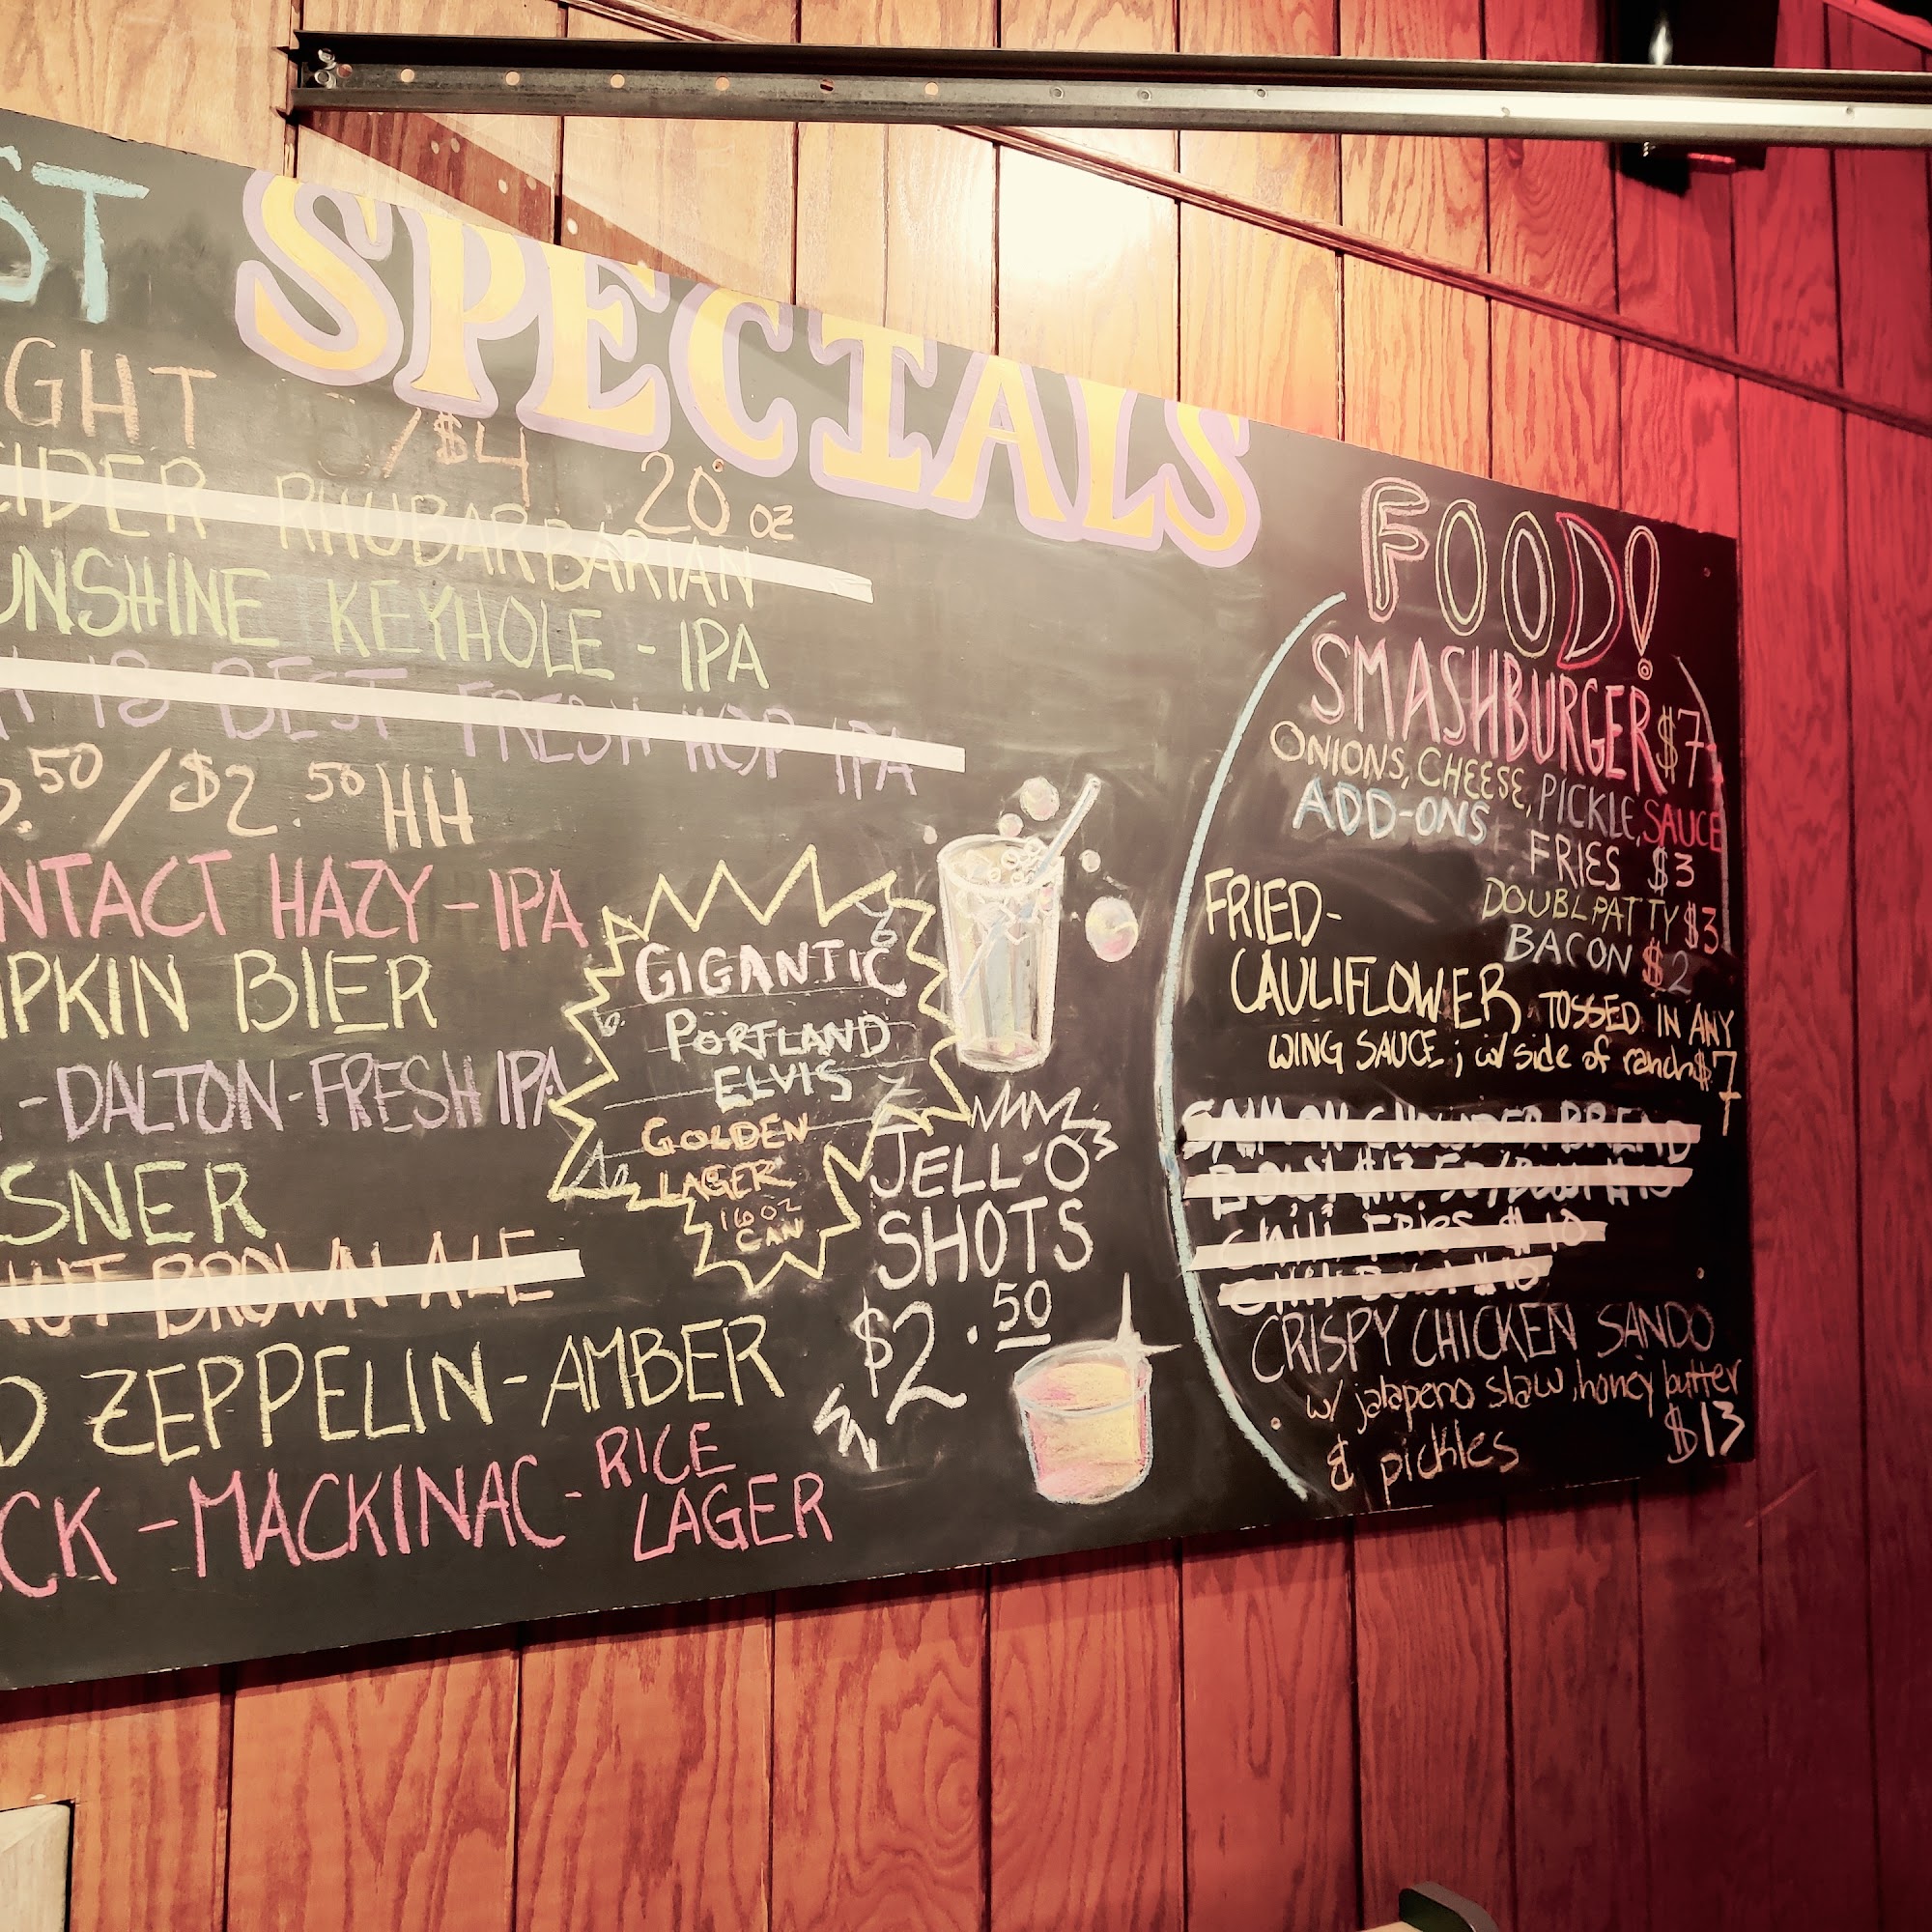 ST
SPECIALS
GHT /$4 20 oz
CIDER - RHUBARBARIAN
UNSHINE KEYHOLE - IPA
T IS BEST FRESH HOP IPA
.50/$2.50 HH
NTACT HAZY - IPA
MPKIN BIER
- DALTON - FRESH IPA
SNER
NUT BROWN ALE
D ZEPPELIN - AMBER
CK - MACKINAC - RICE
LAGER
GIGANTIC
PORTLAND
ELVIS
GOLDEN
LAGER
16 OZ
CAN
JELL-O
SHOTS
$2.50
FOOD!
SMASHBURGER $7
ONIONS, CHEESE, PICKLE, SAUCE
ADD-ONS
FRIES $3
DOUBL PATTY $3
BACON $2
FRIED-
CAULIFLOWER TOSSED IN ANY
WING SAUCE; w/ side of ranch $7
SALMON CHOWDER BREAD
BOWL $13.50/BOWL $10
Chili Fries $10
Chili Bowl $10
CRISPY CHICKEN SANDO
w/ jalapeno slaw, honey butter
& pickles $13